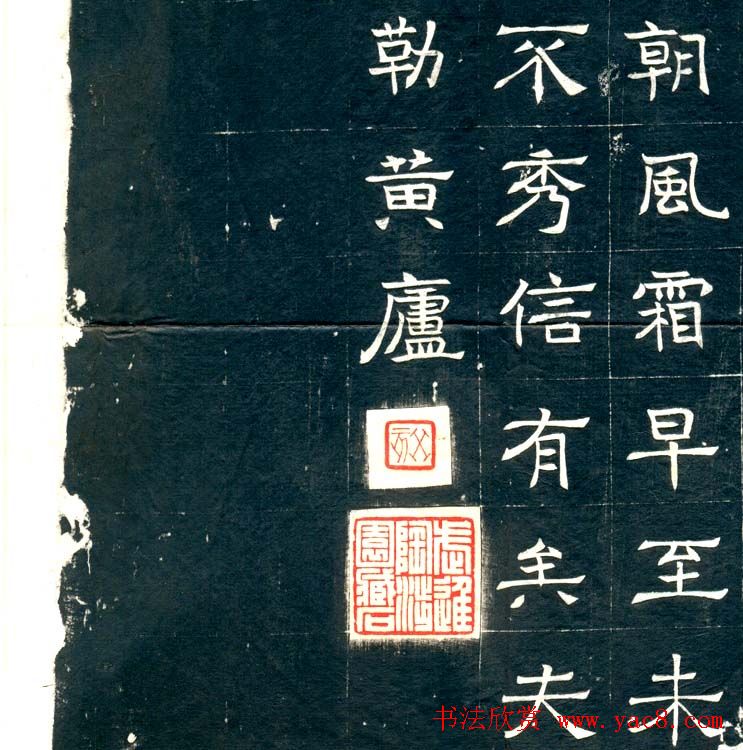 朝風霜早至未
不秀信有矣夫
勒黄廬
武進陶涉園藏石
书法欣赏 www.yac8.com